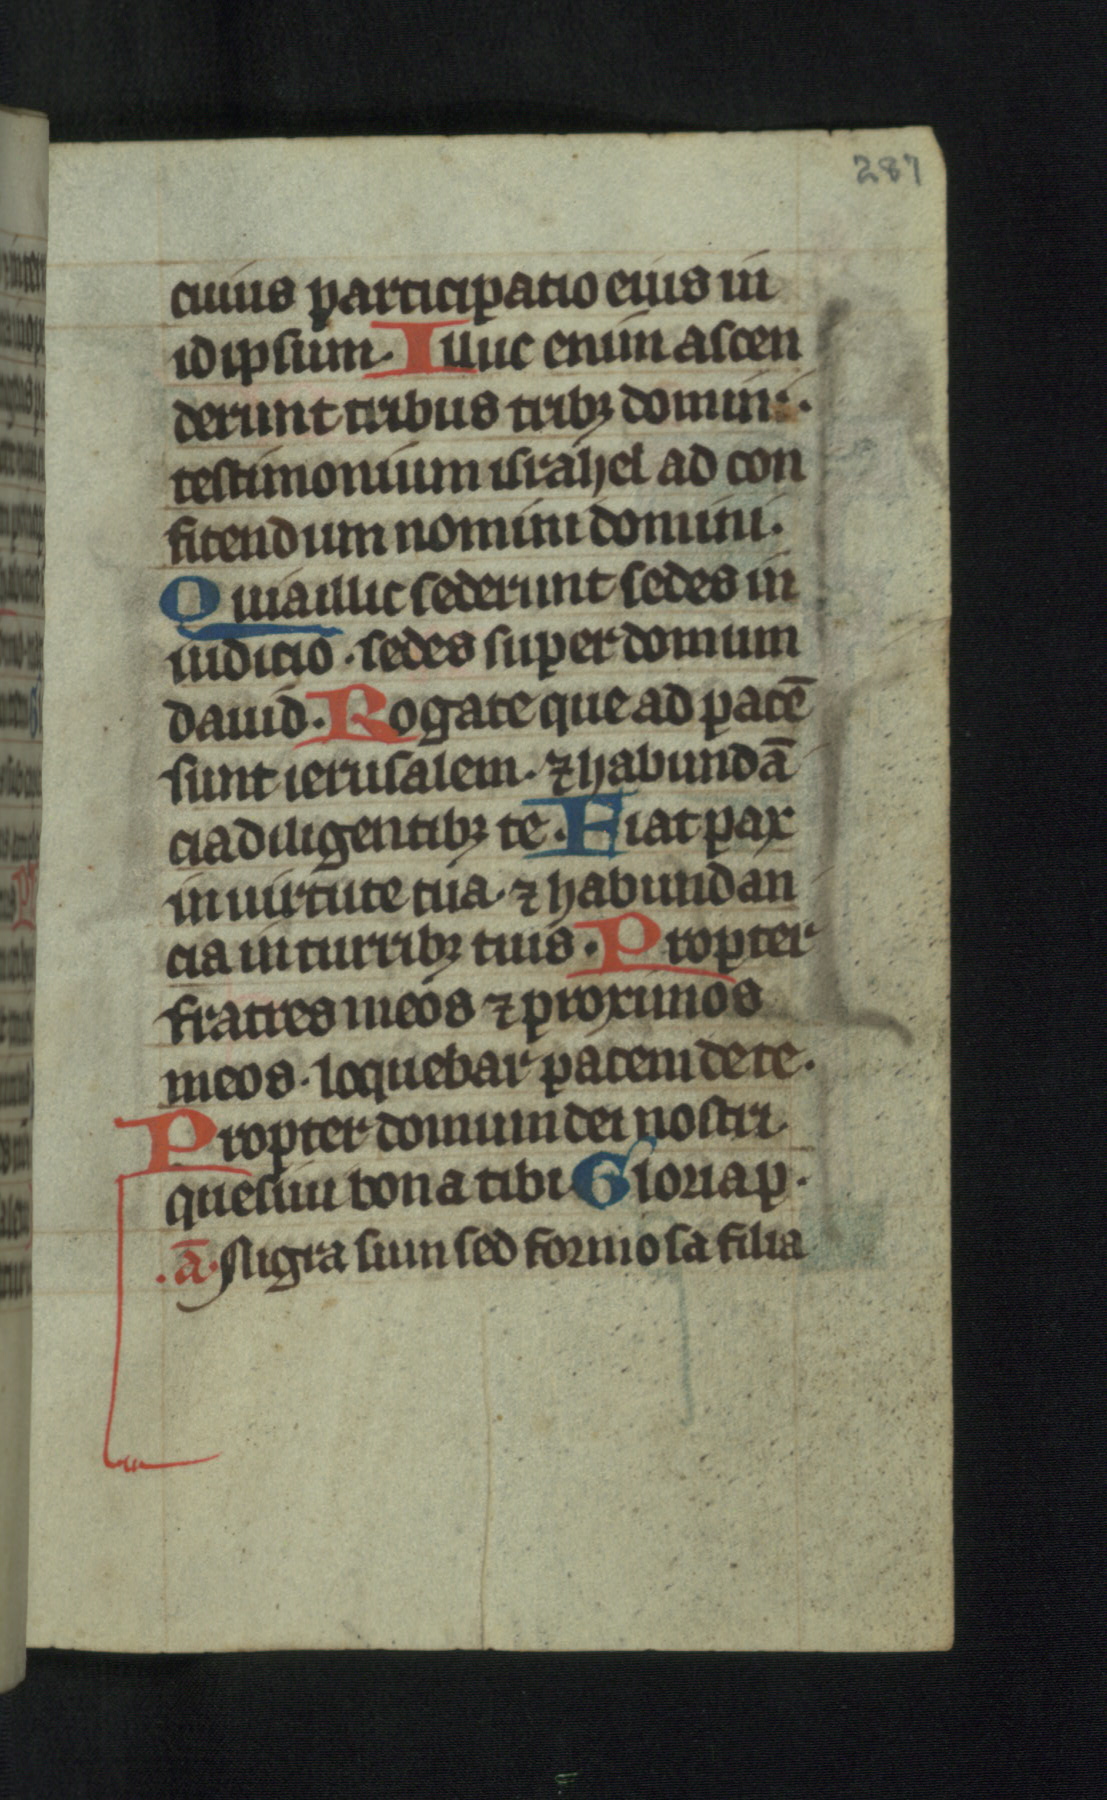 287
cuius participatio eius in
idipsum. Illuc enim ascen
derunt tribus tribꝫ domini.
testimonium israhel ad con
fitendum nomini domini.
Quia illic sederunt sedes in
iudicio. sedes super domum
dauid. Rogate que ad pacē
sunt ierusalem. ⁊ habundā
cia diligentibꝫ te. Fiat pax
in uirtute tua. ⁊ habundan
cia in turribꝫ tuis. Propter
fratres meos ⁊ proximos
meos. loquebar pacem de te.
Propter domum dei nostri
quesiui bona tibi Gloria p.
.ā. Nigra sum sed formosa filia